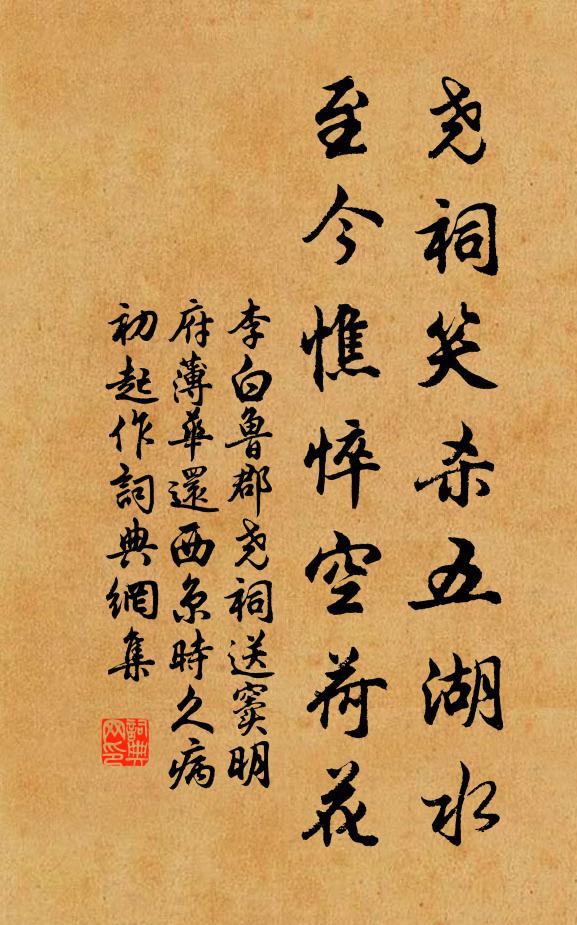 尧祠笑杀五湖水
至今憔悴空荷花
李白鲁郡尧祠送窦明
府薄华還西京時久病
初起作詞典網集
詞典网印